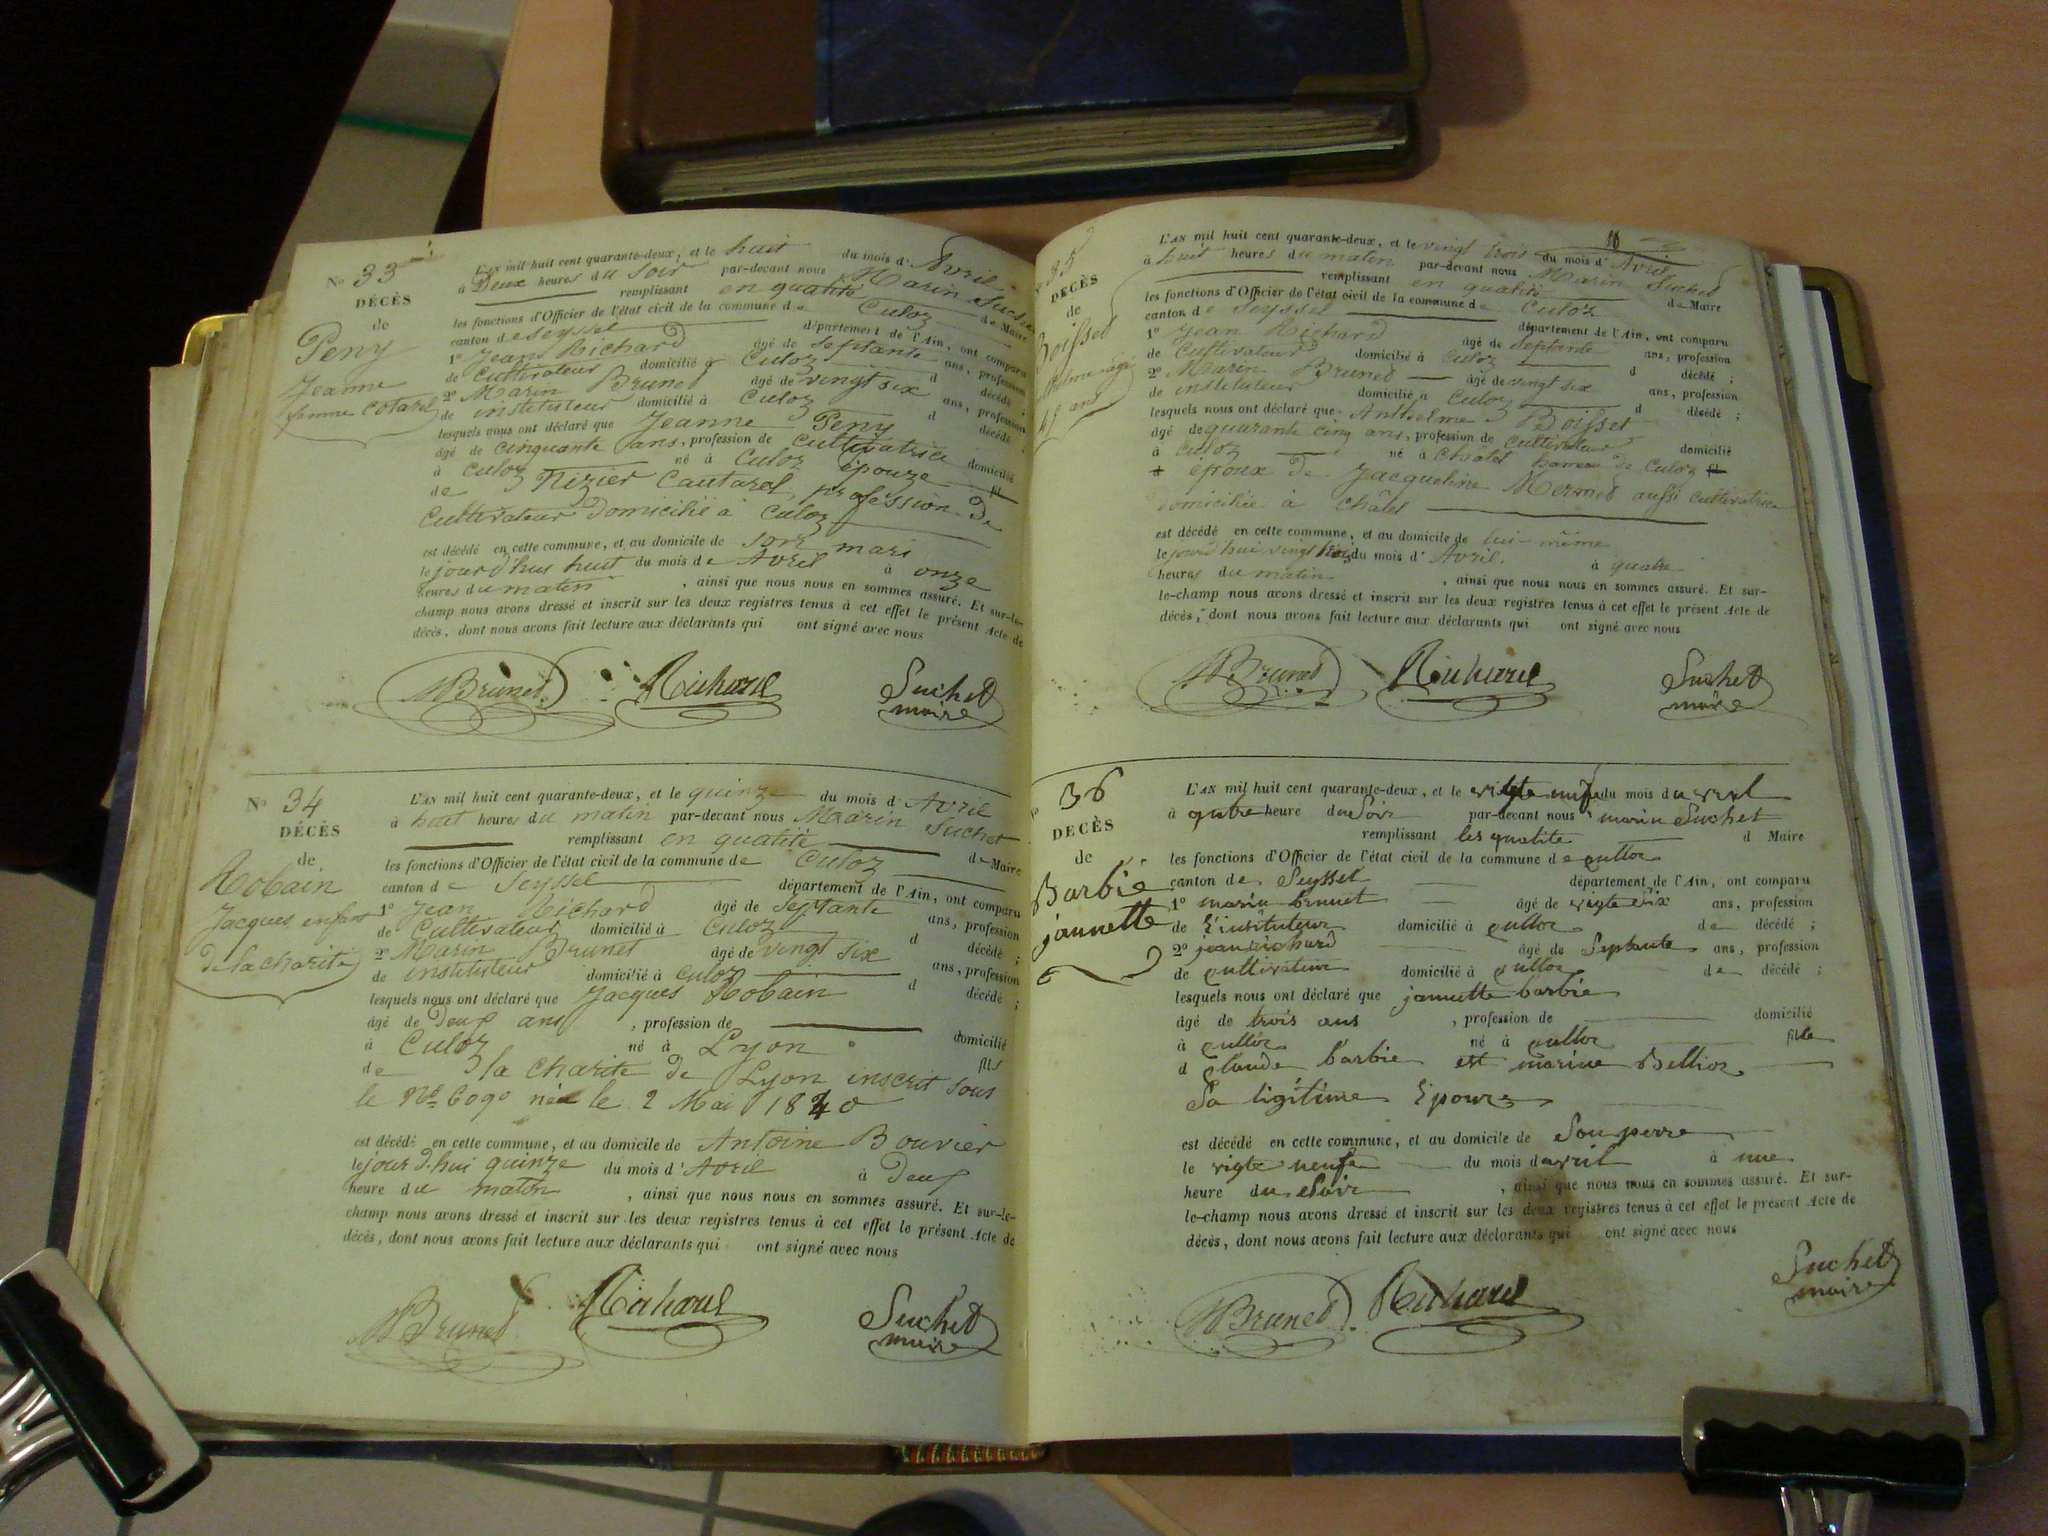 N° 33
DÉCÈS
de
Peny
Jeanne
femme Cotarel
L'AN mil huit cent quarante-deux, et le huit du mois d' Avril
à Deux heures du soir par-devant nous Marin Suchet
remplissant en qualité de Maire
les fonctions d'Officier de l'état civil de la commune de Culoz
canton de Seyssel département de l'Ain, ont comparu
1° Jean Richard âgé de septante ans, profession
de Cultivateur domicilié à Culoz d décédé ;
2° Marin Brunet âgé de vingt six ans, profession
de instituteur domicilié à Culoz d décédé ;
lesquels nous ont déclaré que Jeanne Peny
âgé de cinquante ans, profession de cultivatrice domicilié
à Culoz né à Culoz épouze fil
de Nizier Cautarel, profession de
Cultivateur Domicilié à Culoz
est décédé en cette commune, et au domicile de son mari
le jourd'hui huit du mois de Avril à onze
heures du matin , ainsi que nous nous en sommes assuré. Et sur-le-
champ nous avons dressé et inscrit sur les deux registres tenus à cet effet le présent Acte de
décès, dont nous avons fait lecture aux déclarants qui ont signé avec nous
MBrunet Richard Suchet
maire
N° 34
DÉCÈS
de
Robain
Jacques enfant
de la charité
L'AN mil huit cent quarante-deux, et le quinze du mois d' Avril
à huit heures du matin par-devant nous Marin Suchet
remplissant en qualité de Maire
les fonctions d'Officier de l'état civil de la commune de Culoz
canton de Seyssel département de l'Ain, ont comparu
1° Jean Richard âgé de septante ans, profession
de Cultivateur domicilié à Culoz d décédé ;
2° Marin Brunet âgé de vingt six ans, profession
de instituteur domicilié à Culoz d décédé ;
lesquels nous ont déclaré que Jacques Robain
âgé de Deux ans , profession de domicilié
à Culoz né à Lyon fils
de la charité de Lyon inscrit sous
le N° 6090 né le 2 Mai 1840
est décédé en cette commune, et au domicile de Antoine Bouvier
le jourd'hui quinze du mois d' Avril à Deux
heure du matin , ainsi que nous nous en sommes assuré. Et sur-le-
champ nous avons dressé et inscrit sur les deux registres tenus à cet effet le présent Acte de
décès, dont nous avons fait lecture aux déclarants qui ont signé avec nous
MBrunet Richard Suchet
maire
35
DÉCÈS
de
Boisset
45 ans
L'AN mil huit cent quarante-deux, et le vingt trois du mois d' Avril
à huit heures du matin par-devant nous Marin Suchet
remplissant en qualité de Maire
les fonctions d'Officier de l'état civil de la commune de Culoz
canton de Seyssel département de l'Ain, ont comparu
1° Jean Richard âgé de septante ans, profession
de Cultivateur domicilié à Culoz d décédé ;
2° Marin Brunet âgé de vingt six ans, profession
de instituteur domicilié à Culoz d décédé ;
lesquels nous ont déclaré que Anthelme Boisset
âgé de quarante cinq ans, profession de Cultivateur domicilié
à Culoz né à Châtel hameau de Culoz fil
époux de Jacqueline Mermet aussi cultivatrice
domiciliée à Châtel
est décédé en cette commune, et au domicile de lui-même
le jourd'hui vingt trois du mois d' Avril à quatre
heures du matin , ainsi que nous nous en sommes assuré. Et sur-
le-champ nous avons dressé et inscrit sur les deux registres tenus à cet effet le présent Acte de
décès, dont nous avons fait lecture aux déclarants qui ont signé avec nous
MBrunet Richard Suchet
maire
36
DECÈS
de
Barbié
jannette
L'AN mil huit cent quarante-deux, et le vigte neufe du mois d avril
à qutre heure du Soir par-devant nous marin Suchet
remplissant les qualite d Maire
les fonctions d'Officier de l'état civil de la commune de culloz
canton de Seyssel département de l'Ain, ont comparu
1° marin brunet âgé de vigte six ans, profession
de l'instituteur domicilié à culloz de décédé ;
2° jean richard âgé de Septante ans, profession
de cultivateur domicilié à culloz de décédé ;
lesquels nous ont déclaré que jannette barbié
âgé de trois ans , profession de domicilié
à culloz né à culloz fille
d claude barbié est marine Bellioz
Sa ligitime Epouze
est décédé en cette commune, et au domicile de Son perre
le vigte neufe du mois d avril à une
heure du Soir , ainsi que nous nous en sommes assuré. Et sur-
le-champ nous avons dressé et inscrit sur les deux registres tenus à cet effet le présent Acte de
décès, dont nous avons fait lecture aux déclarants qui ont signé avec nous
MBrunet Richard Suchet
maire